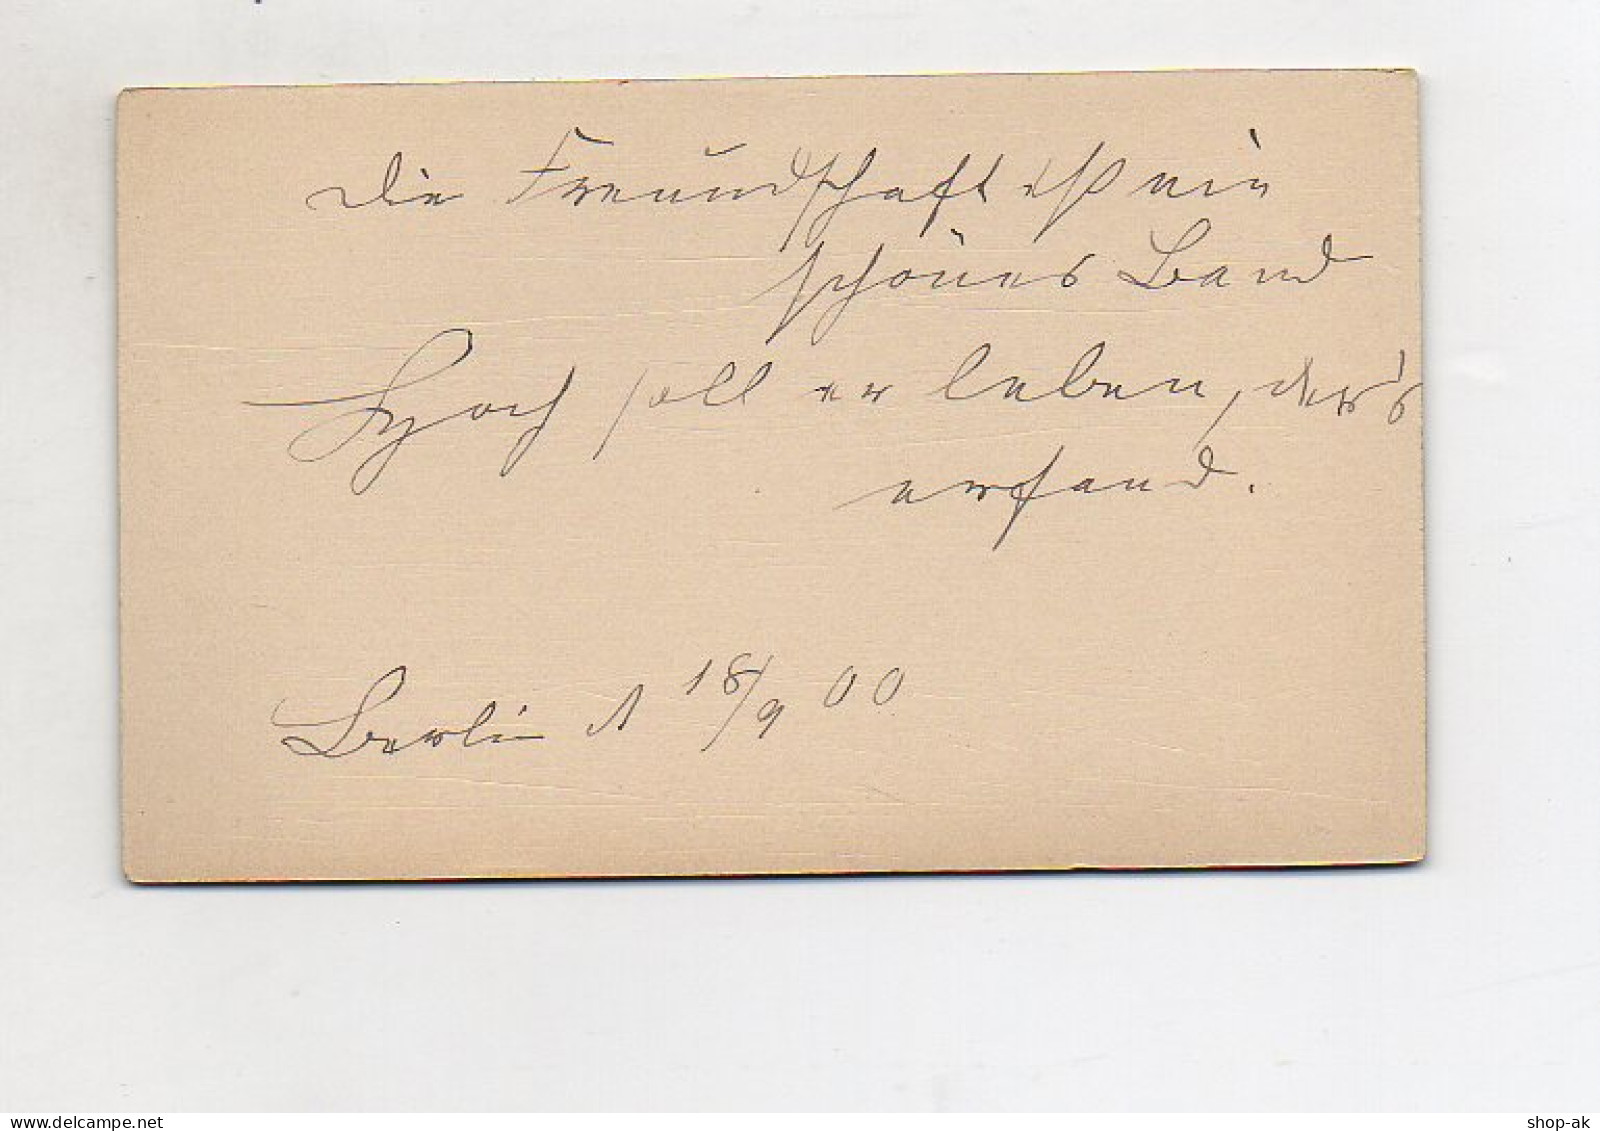 Die Freundschaft ist ein
schönes Band
Hoch soll er leben, der's
erfand.
Berlin d 18/9 00
shop-ak